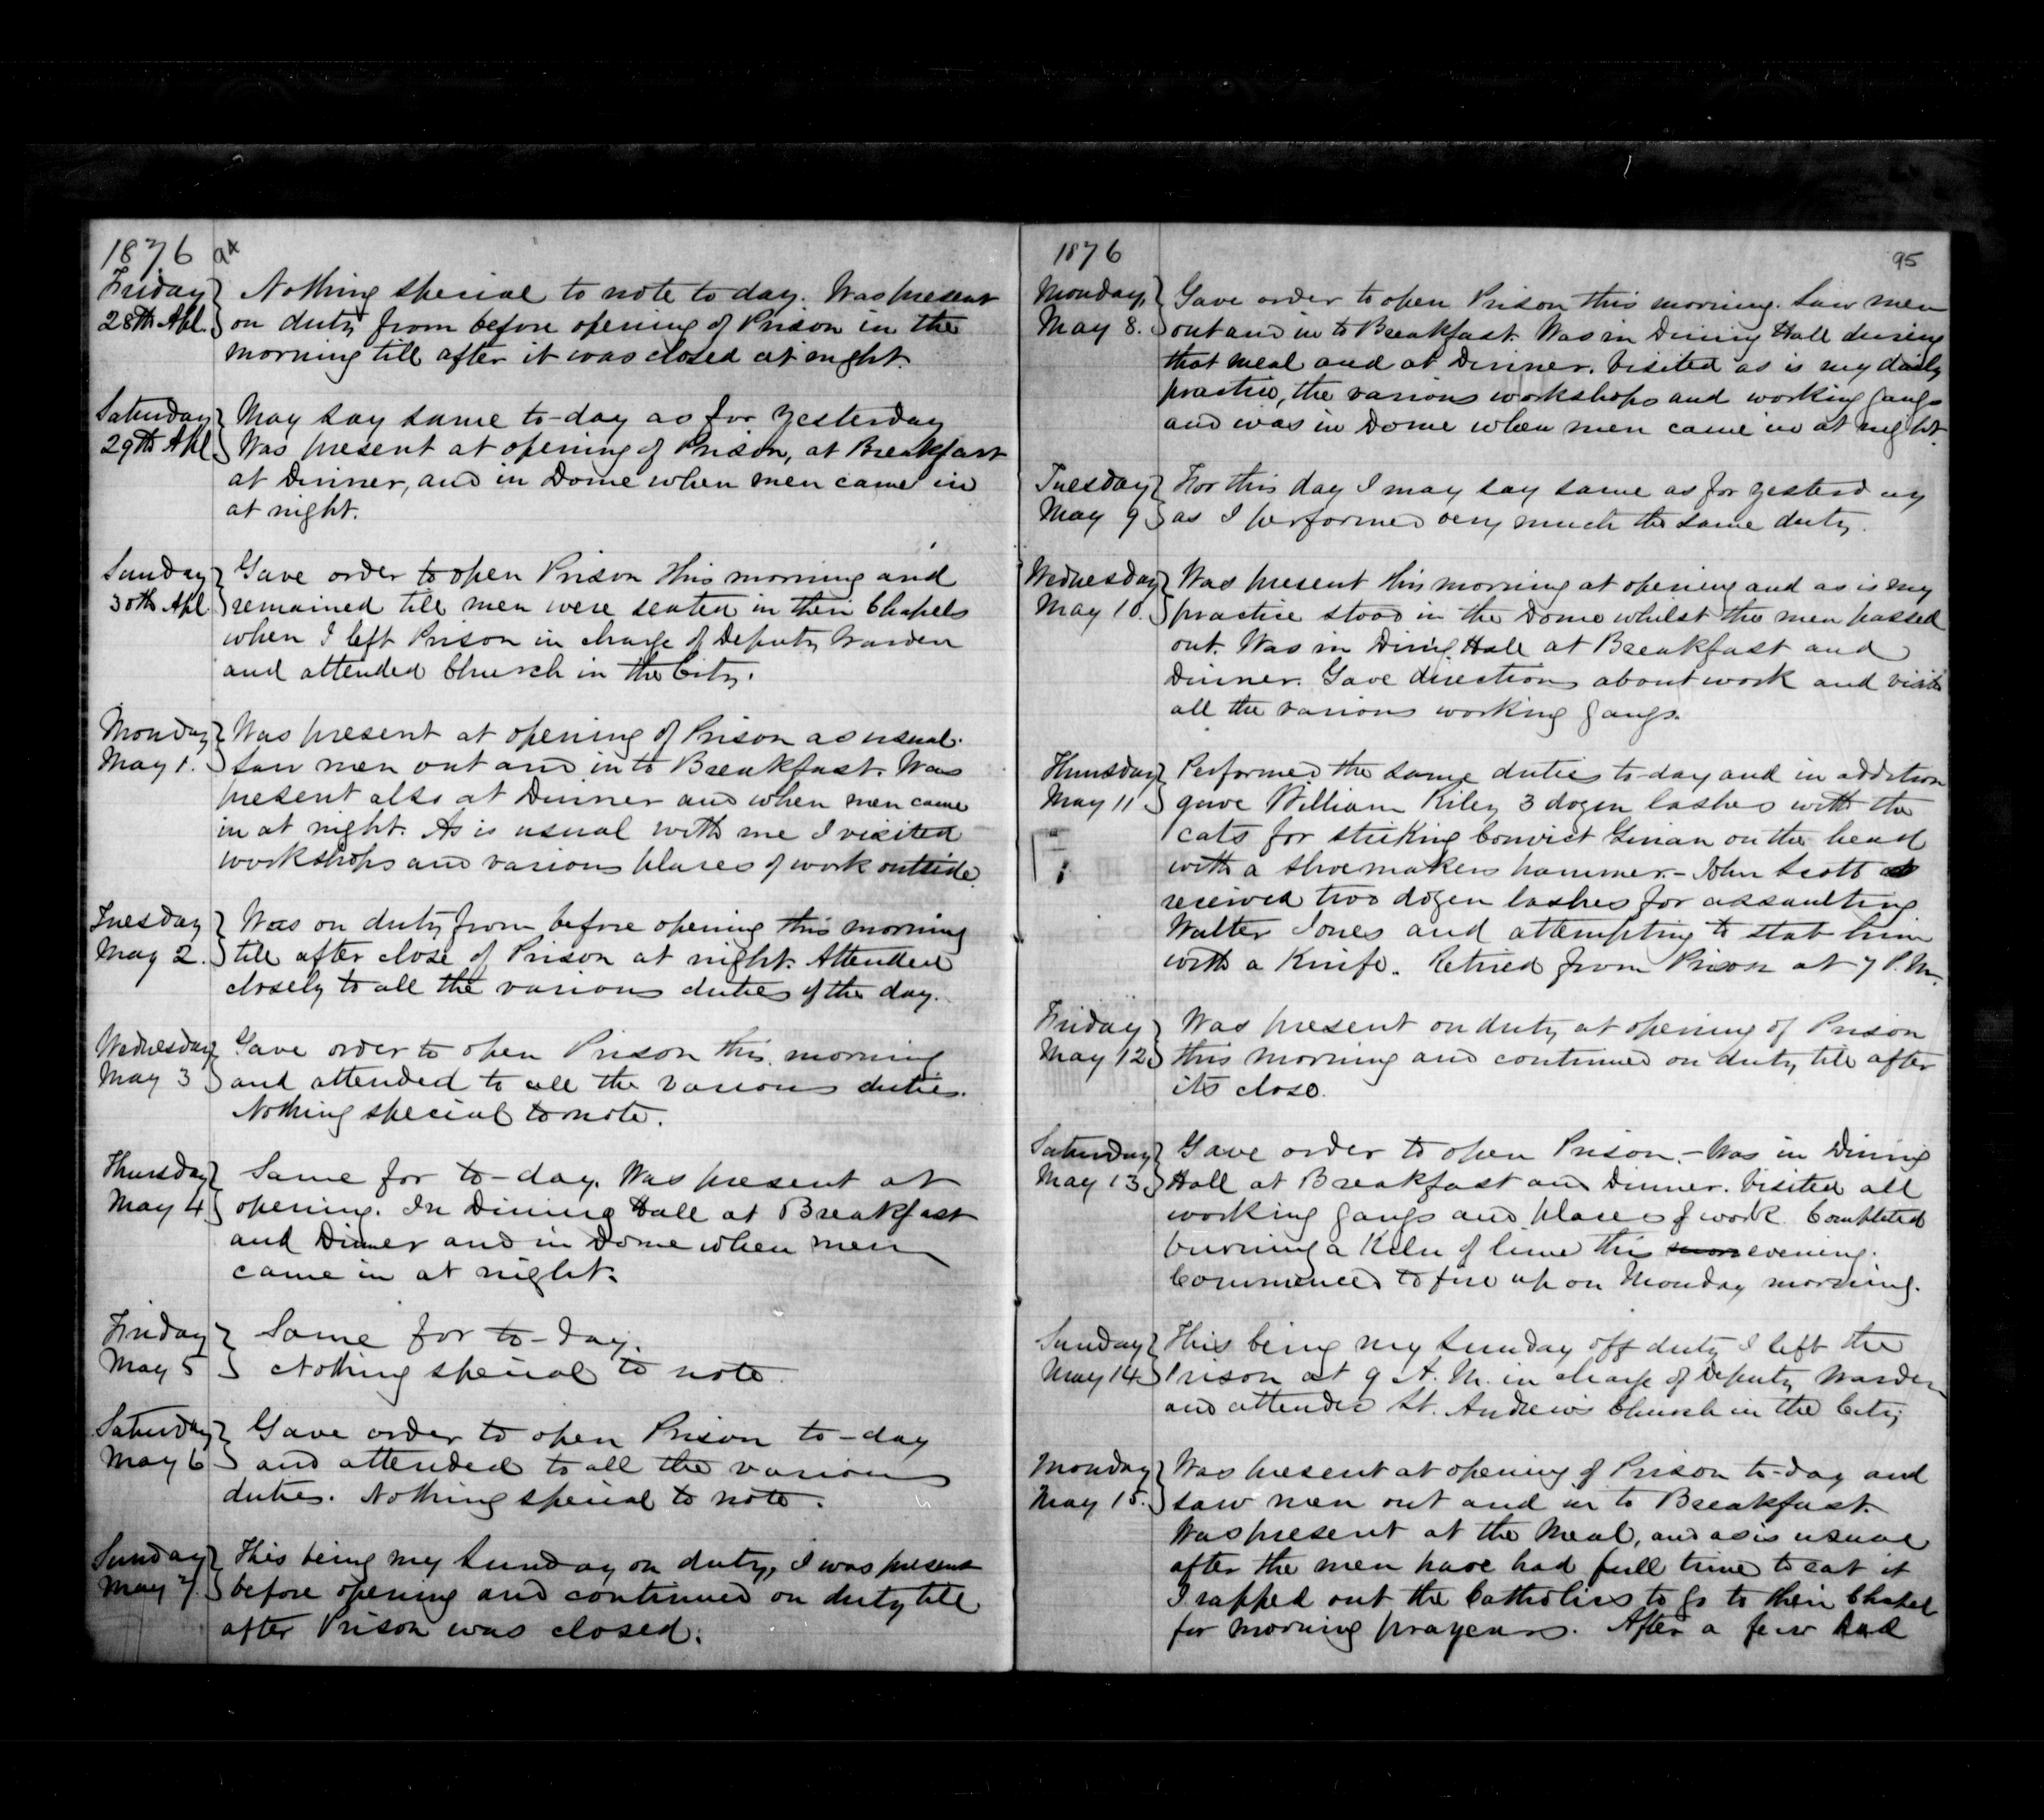 1876 94
Friday 28th Apl. Nothing special to note to day. Was present
on duty from before opening of Prison in the
morning till after it was closed at night.
Saturday 29th Apl. May say same to-day as for yesterday
Was present at opening of Prison, at Breakfast
at Dinner, and in Dome when men came in
at night.
Sunday 30th Apl Gave order to open Prison this morning and
remained till men were seated in their Chapels
when I left Prison in charge of Deputy Warden
and attended Church in the City.
Monday May 1. Was present at opening of Prison as usual.
Saw men out and in to Breakfast. Was
present also at Dinner and when men came
in at night. As is usual with me I visited
workshops and various places of work outside.
Tuesday May 2. Was on duty from before opening this morning
till after close of Prison at night. Attended
closely to all the various duties of the day.
Wednesday May 3 Gave order to open Prison this morning
and attended to all the various duties.
Nothing special to note.
Thursday May 4 Same for to-day. Was present at
opening. In Dining Hall at Breakfast
and Dinner and in Dome when men
came in at night.
Friday May 5 Same for to-day.
Nothing special to note.
Saturday May 6 Gave order to open Prison to-day
and attended to all the various
duties. Nothing special to note.
Sunday May 7. This being my Sunday on duty, I was present
before opening and continued on duty till
after Prison was closed.
1876 95
Monday May 8. Gave order to open Prison this morning. Saw men
out and in to Breakfast. Was in Dining Hall during
that meal and at Dinner. Visited as is my daily
practice, the various workshops and working gangs
and was in Dome when men came in at night.
Tuesday May 9 For this day I may say same as for yesterday
as I performed very much the same duty.
Wednesday May 10. Was present this morning at opening and as is my
practice stood in the Dome whilst the men passed
out. Was in Dining Hall at Breakfast and
Dinner. Gave directions about work and visited
all the various working gangs.
Thursday May 11 Performed the same duties to-day and in addition
gave William Riley 3 dozen lashes with the
cats for striking Convict Ginan on the head
with a shoemakers hammer - John Scott
received two dozen lashes for assaulting
Walter Jones and attempting to stab him
with a Knife. Retired from Prison at 7 P.M.
Friday May 12 Was present on duty at opening of Prison
this morning and continued on duty till after
its close.
Saturday May 13 Gave order to open Prison. - Was in Dining
Hall at Breakfast and Dinner. Visited all
working gangs and places of work. Completed
burning a Kiln of lime this evening.
Commenced to fire up on Monday morning.
Sunday May 14 This being my Sunday off duty I left the
Prison at 9 A.M. in charge of Deputy Warden
and attended St. Andrews Church in the City
Monday May 15. Was present at opening of Prison to-day and
saw men out and in to Breakfast.
Was present at the Meal, and as is usual
after the men have had full time to eat it
I rapped out the Catholics to go to their Chapel
for morning prayers. After a few had